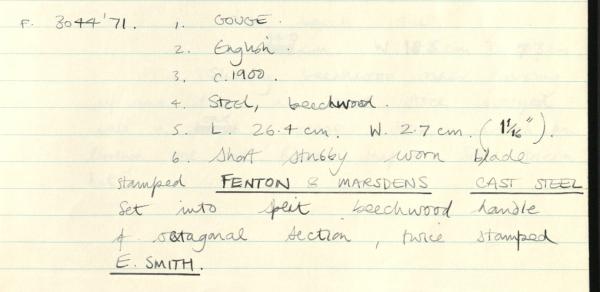 F. 3044'71. 1. GOUGE.
2. English.
3. c.1900.
4. Steel, beechwood.
5. L. 26.4 cm. W. 2.7 cm. (1 1/16").
6. Short stubby worn blade
stamped FENTON & MARSDENS CAST STEEL
Set into split beechwood handle
of octagonal section, twice stamped
E. SMITH.